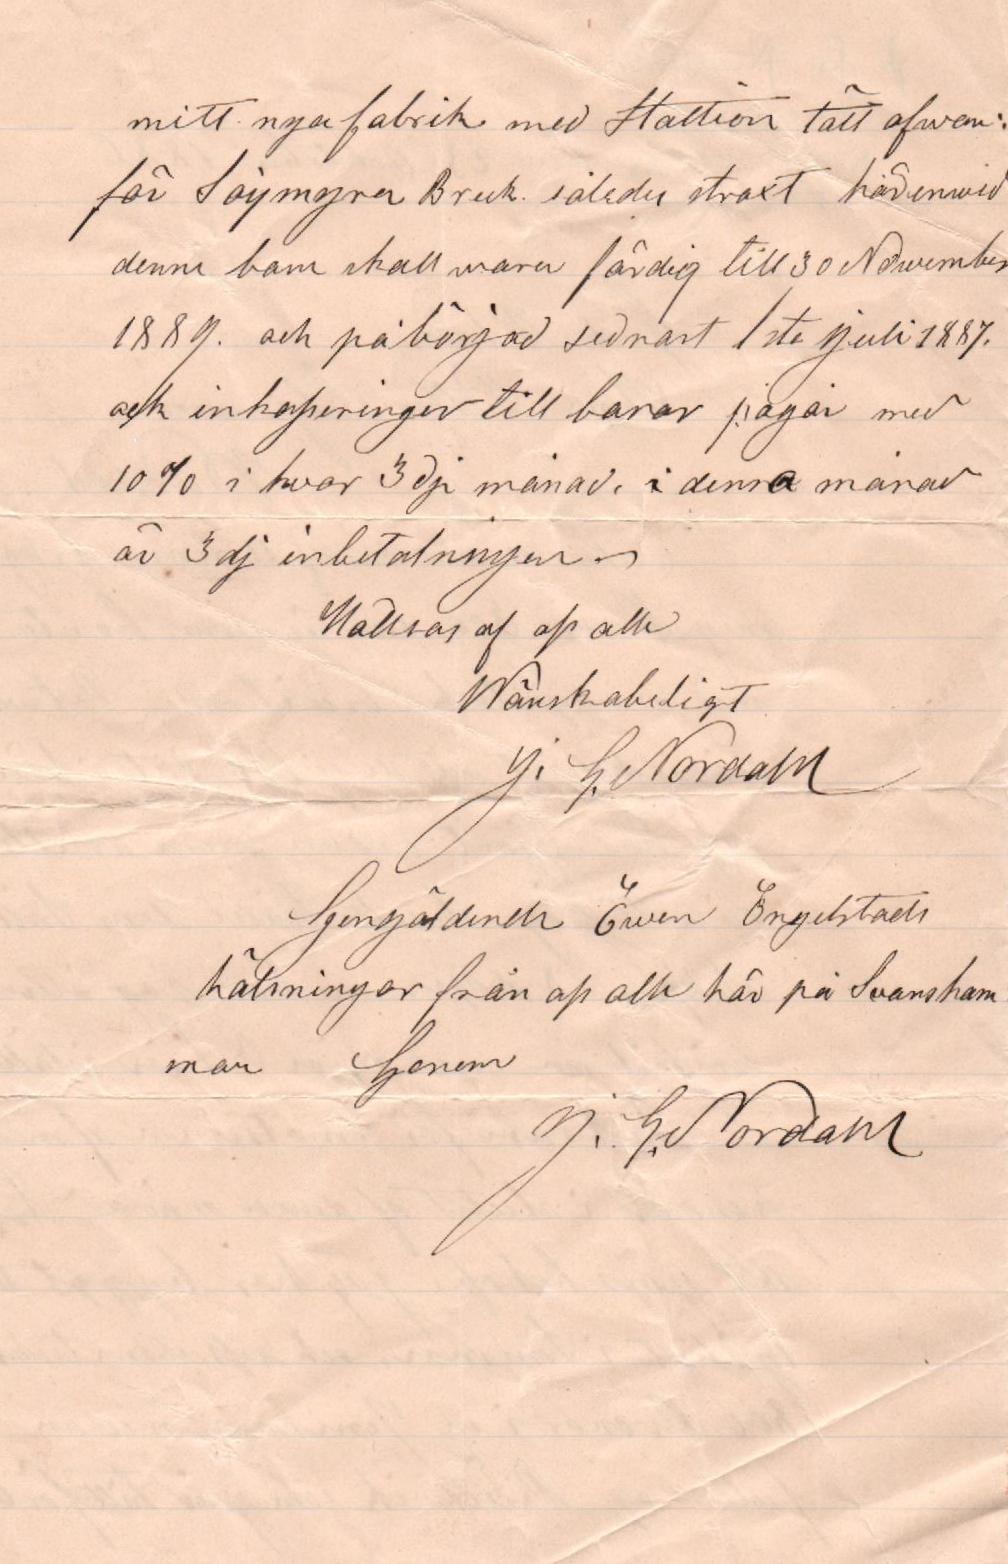 mitt nya fabrik med Stattion tätt afwan:
för Söymyra Bruk. således straxt härinwid
denne bana skall wara färdig till 30 November
1889. och påbörjad sednast 1ste Juli 1887.
och inkaseringer till banar pågår med
10% i hvar 3dji månad. i denna månad
är 3dj inbetalningen
Hallsas af ofs alle
Wänskabeligt
J. G. Nordahl
Gengäldende Öwen Engelstads
hälsningar från ofs alle här på Svansham
mar Genom
J. G. Nordahl